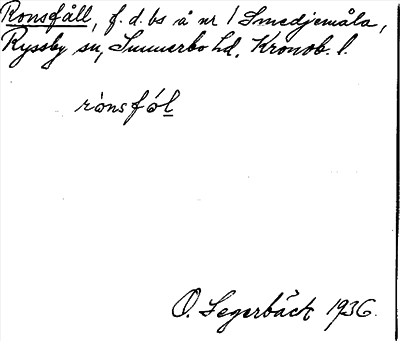 Ronsfåll, f.d. bs å nr 1 Smedjemåla,
Ryssby sn, Sunnerbo hd. Kronob. l.
rònsfól
O. Segerbäck 1936.